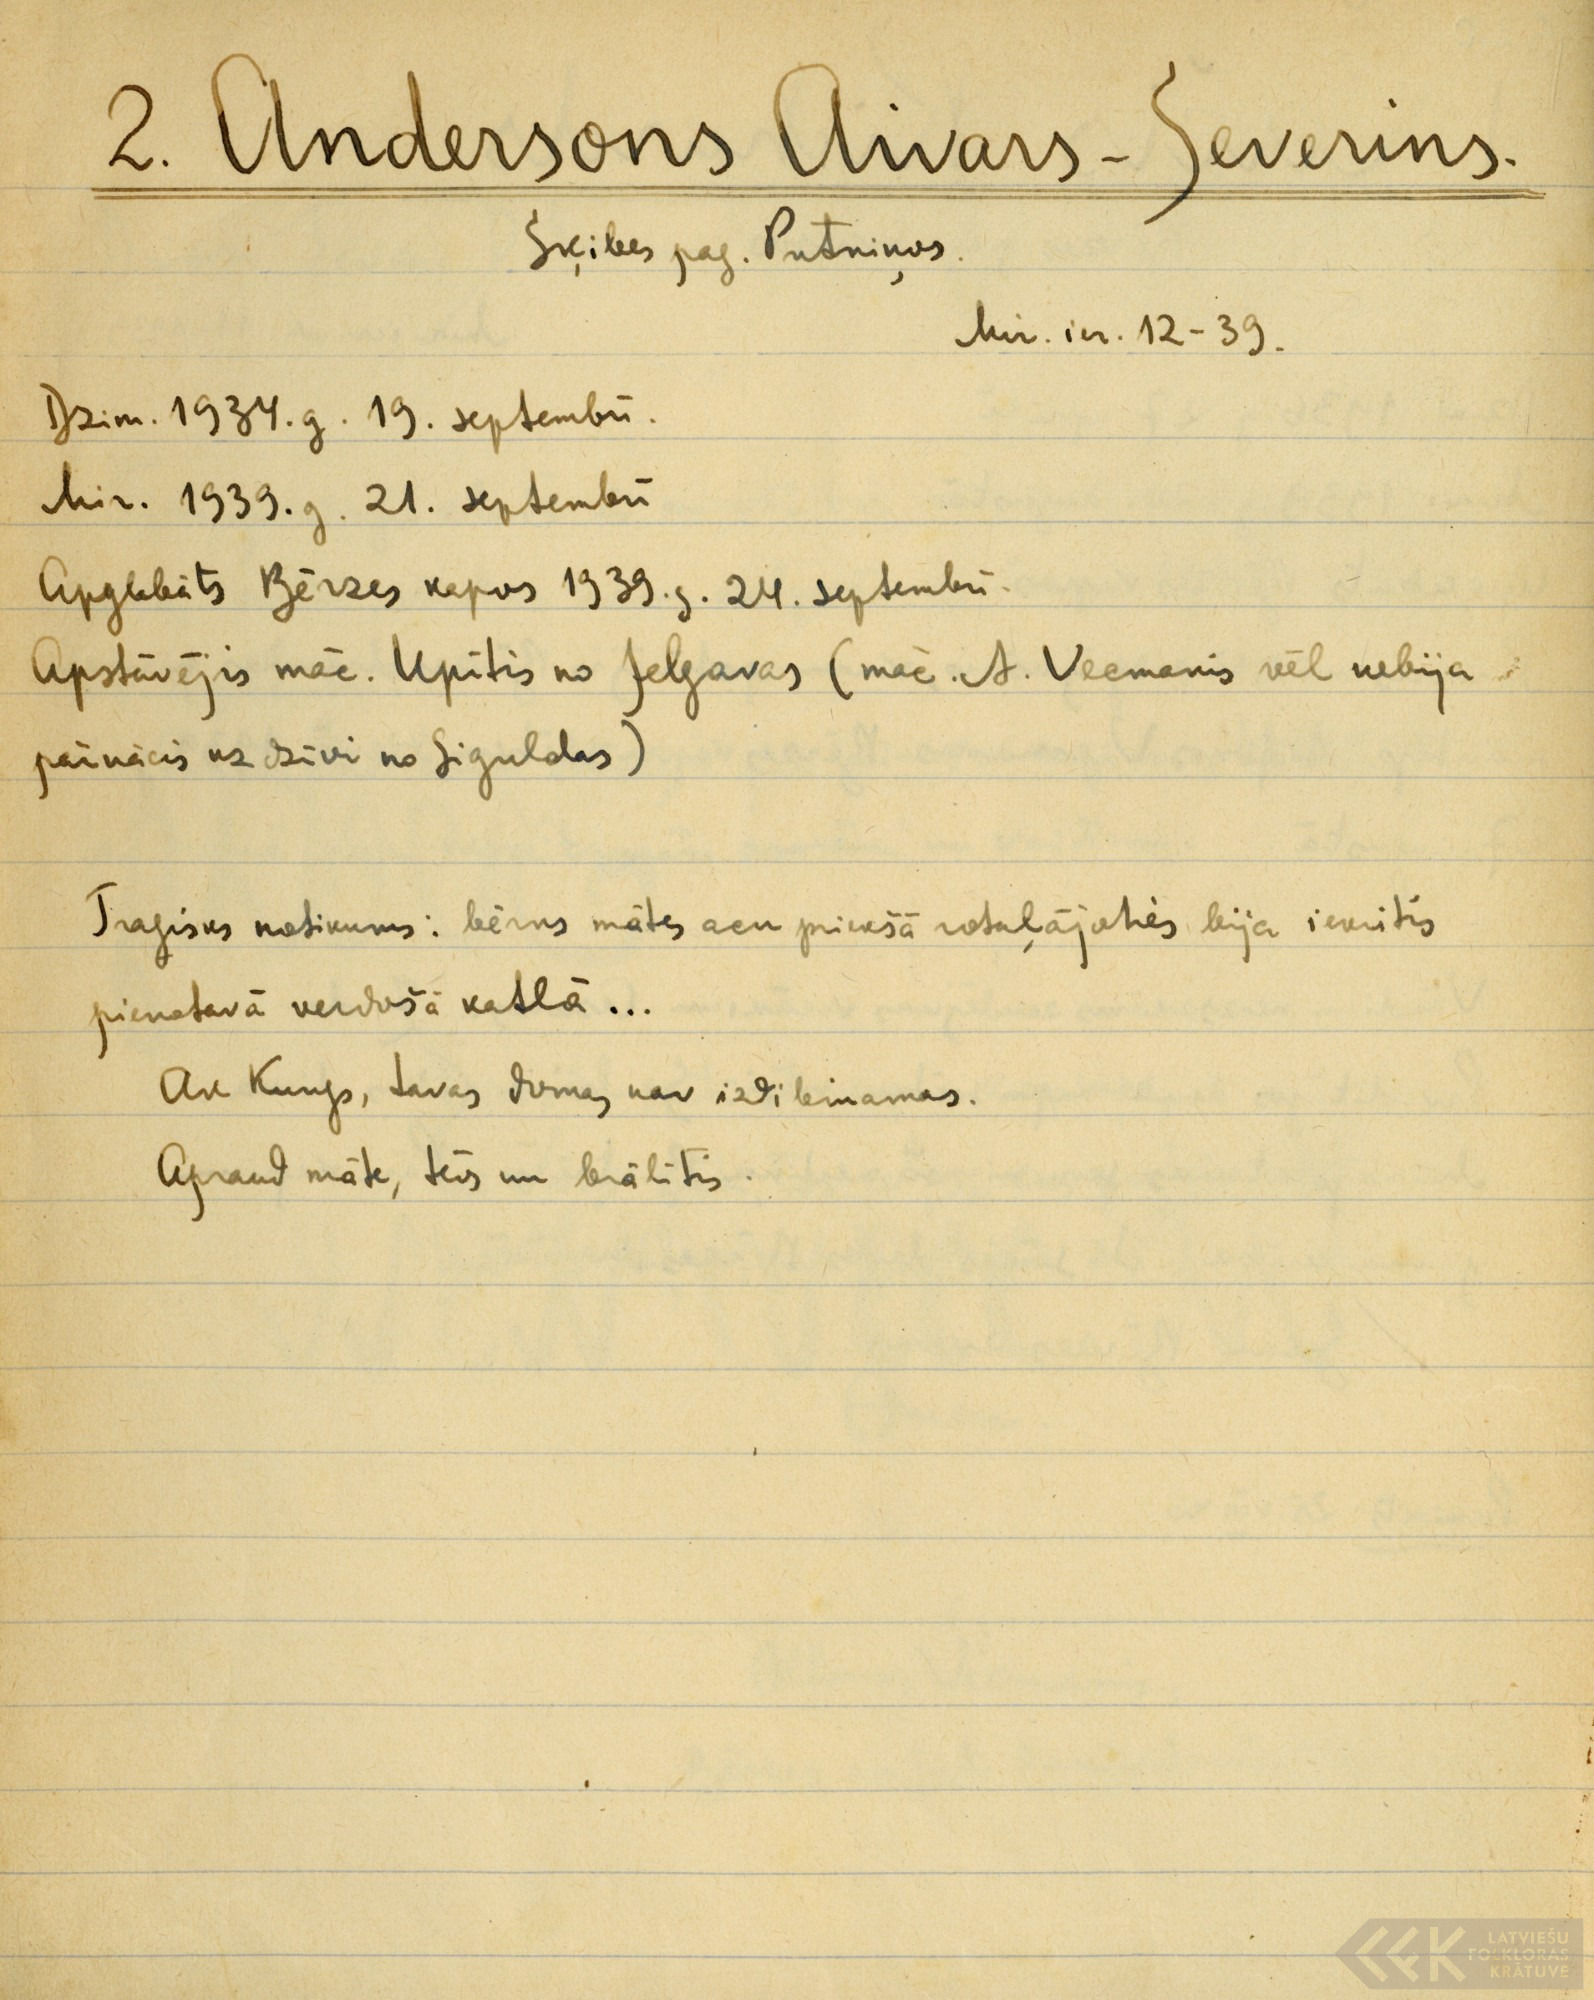 2. Andersons Aivars - Severins.
Sķibes pag. Putniņos.
Mir. ier. 12 - 39.
Dzim. 1934. g. 19. septembrī.
Mir. 1939. g. 21. septembrī
Apglabāts Bērzes kapos 1939. g. 24. septembrī.
Apstāvējis māc. Upītis no Jelgavas (māc. A. Vecmanis vēl nebija
pārnācis uz dzīvi no Siguldas)
Tragisks notikums: bērns mātes acu priekšā rotaļājoties bija iekritis
pienotavā verdošā katlā ...
Ak Kungs, tavas domas nav izdibinamas.
Apraud māte, tēvs un brālītis.
LATVIEŠU
FOLKLORAS
KRĀTUVE